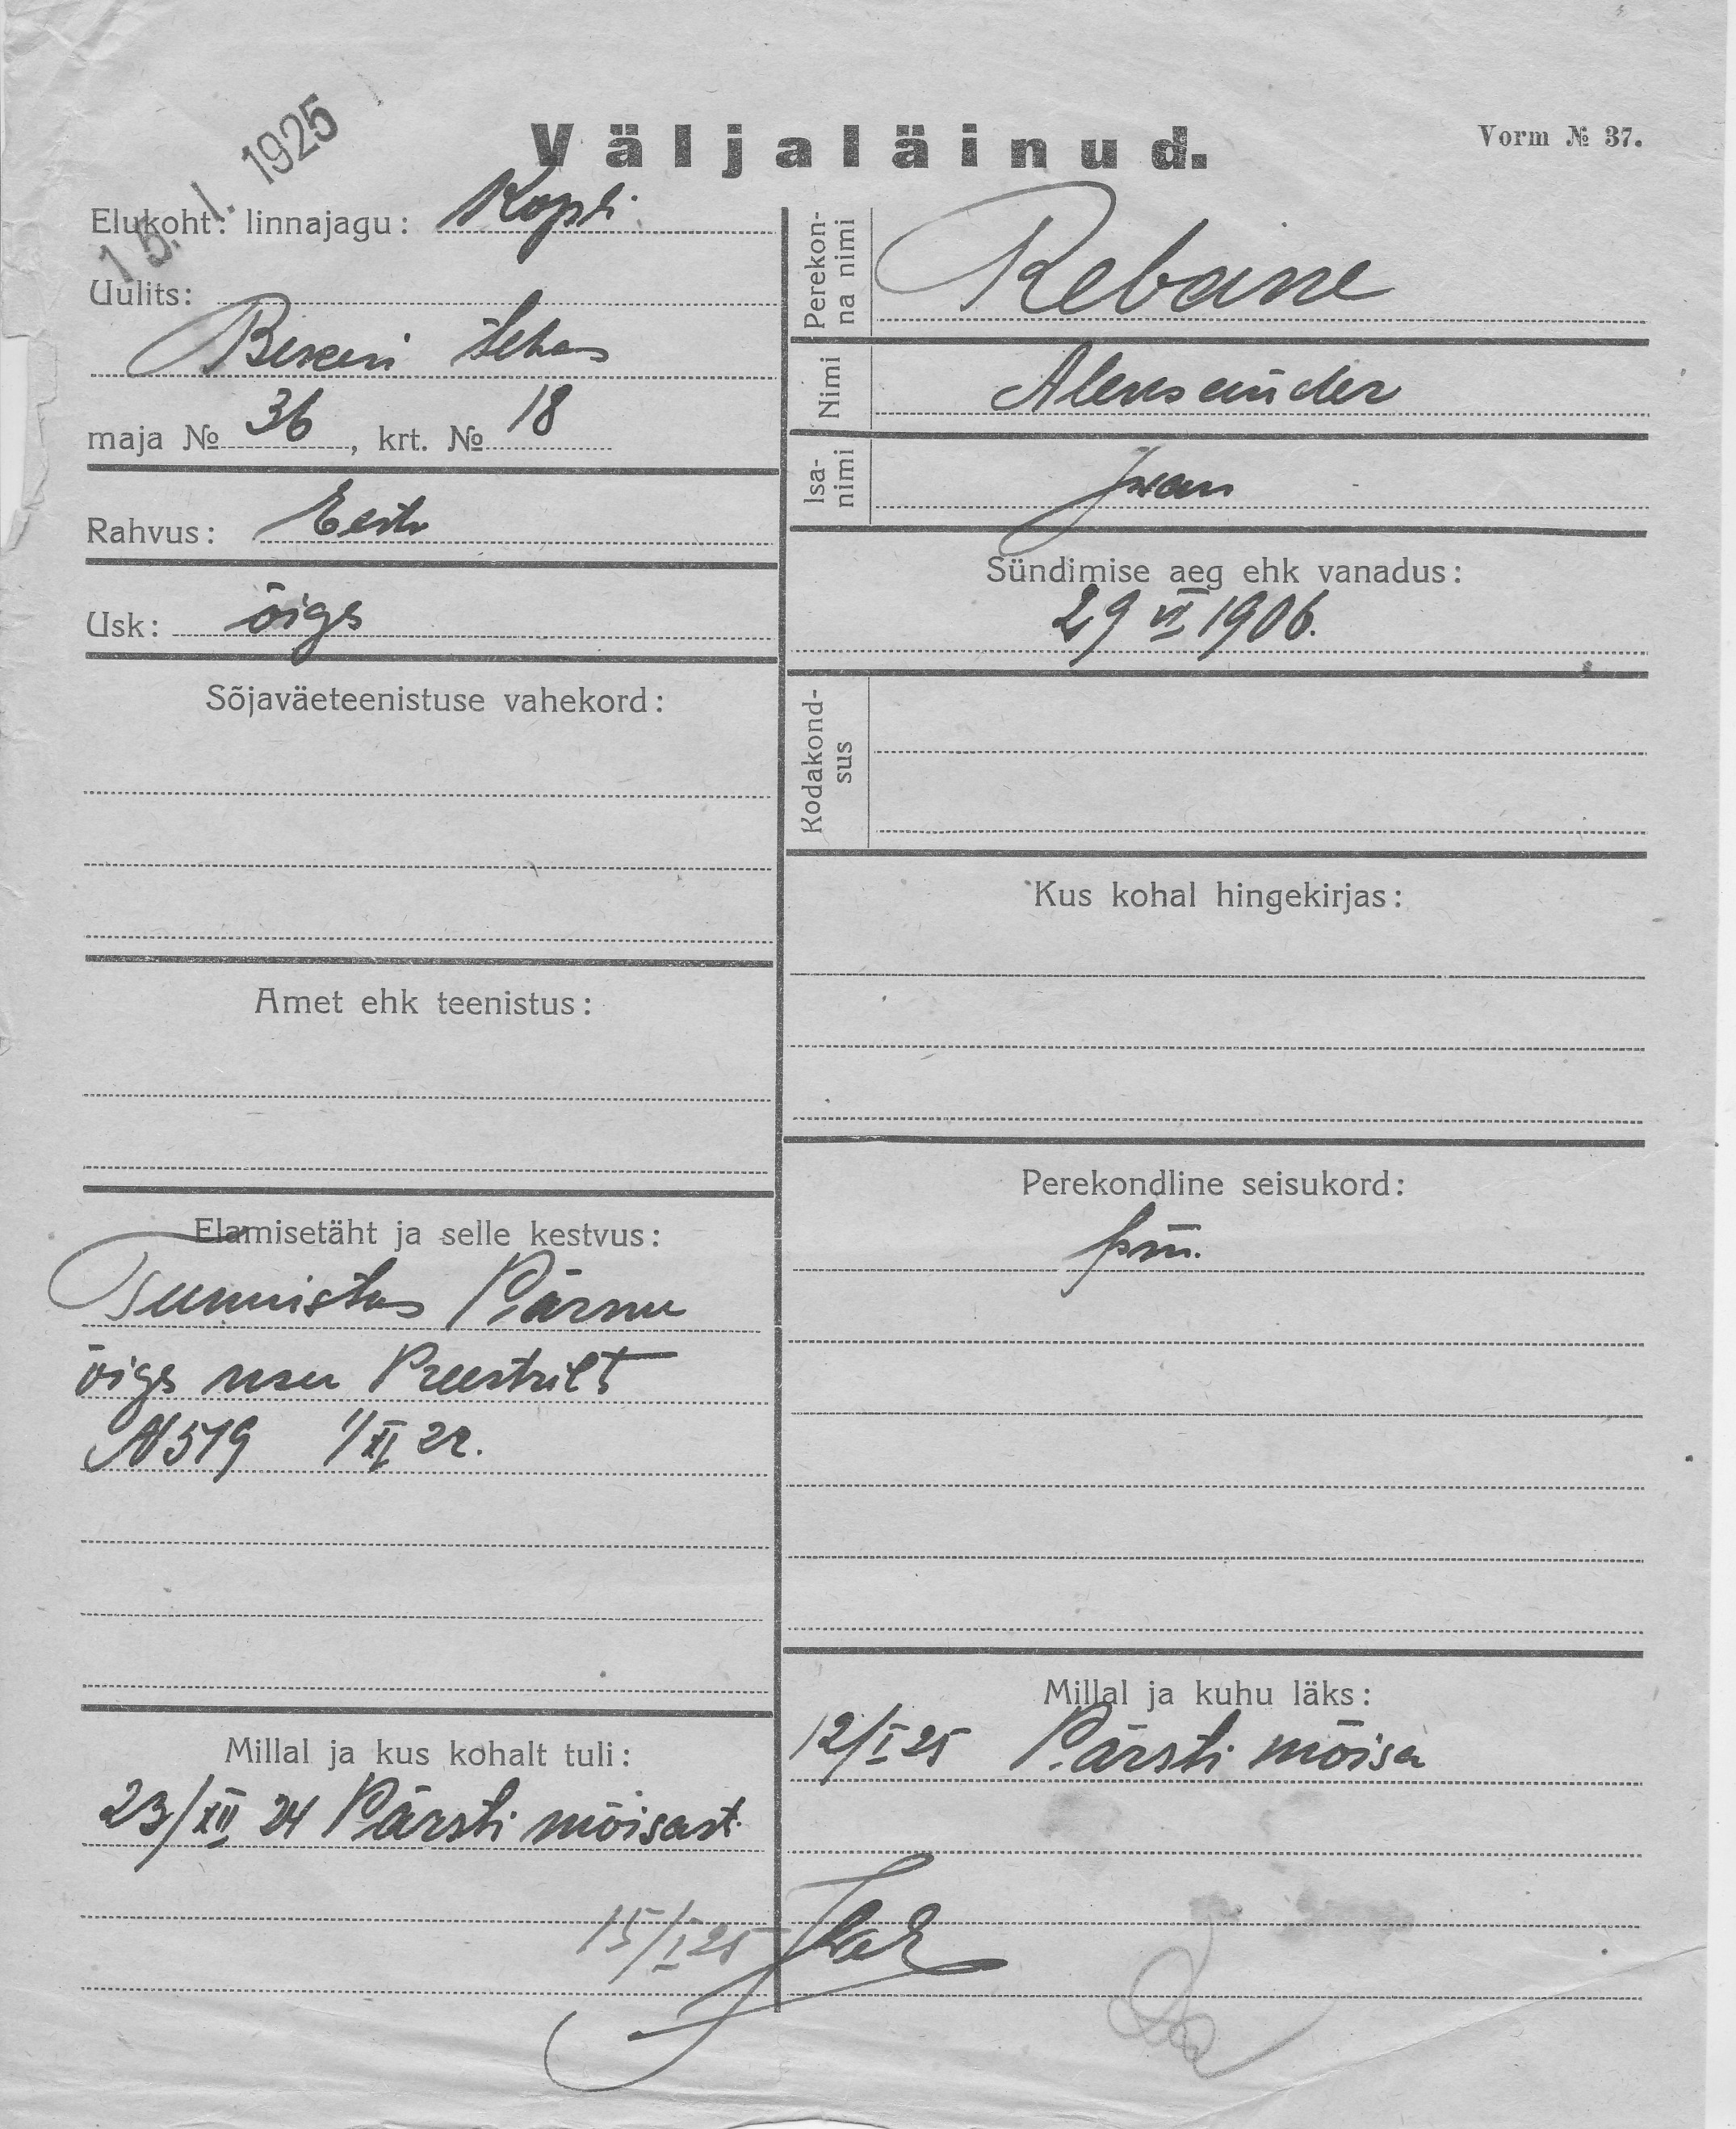 Väljaläinud.
Vorm № 37.
15. I. 1925
Elukoht: linnajagu: Kopli
Uulits:
Bekeri tehas
maja № 36, krt. № 18
Rahvus: Eesti
Usk: õigs
Sõjaväeteenistuse vahekord:
Amet ehk teenistus:
Elamisetäht ja selle kestvus:
Tunnistus Pärnu
õigs usu Preestrilt
N 519 1/XII 22.
Millal ja kus kohalt tuli:
23/XII 24 Pärsti mõisast
15/I 25
Perekonna nimi
Rebane
Nimi
Aleksander
Isanimi
Iwan
Sündimise aeg ehk vanadus:
29 VI 1906.
Kodakondsus
Kus kohal hingekirjas:
Perekondline seisukord:
Millal ja kuhu läks:
12/I 25 Pärsti mõisa